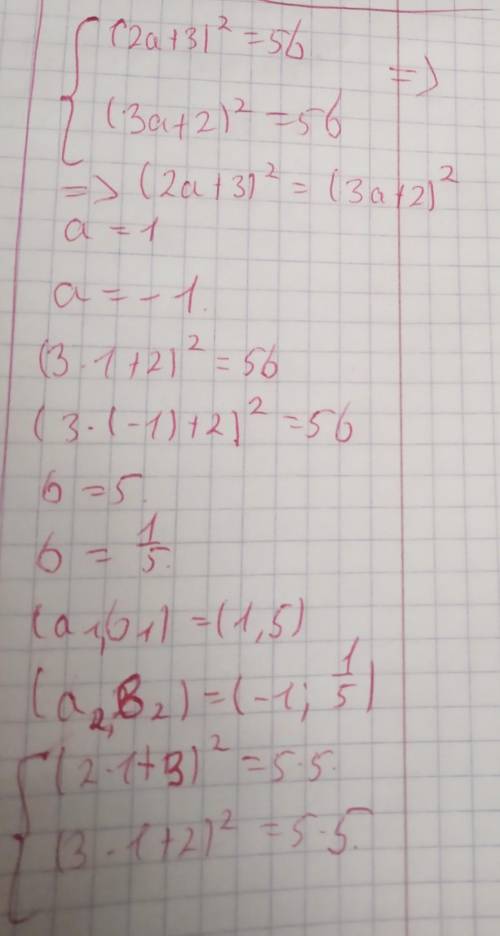 (2a+3)² = 5b
=>
(3a+2)² = 5b
=> (2a+3)² = (3a+2)²
a = 1
a = -1.
(3·1+2)² = 5b
(3·(-1)+2)² = 5b
b = 5.
b = 1/5.
(a₁,b₁) = (1,5)
(a₂,B₂) = (-1; 1/5)
(2·1+3)² = 5·5.
(3·1+2)² = 5·5.